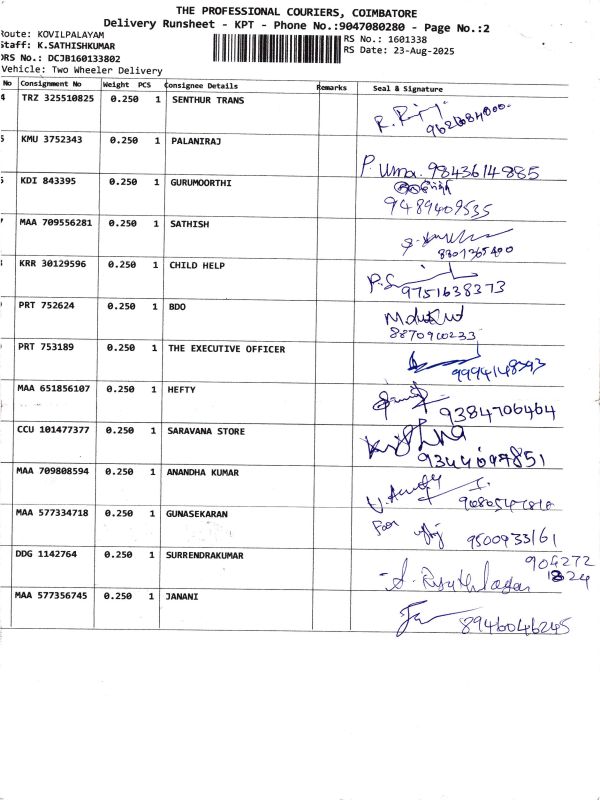 THE PROFESSIONAL COURIERS, COIMBATORE
Delivery Runsheet - KPT - Phone No.:9047080280 - Page No.:2
Route: KOVILPALAYAM
Staff: K.SATHISHKUMAR
DRS No.: DCJB160133802
Vehicle: Two Wheeler Delivery
RS No.: 1601338
RS Date: 23-Aug-2025
No Consignment No Weight PCS Consignee Details Remarks Seal & Signature
4 TRZ 325510825 0.250 1 SENTHUR TRANS
5 KMU 3752343 0.250 1 PALANIRAJ P. Uma. 9843614885
KDI 843395 0.250 1 GURUMOORTHI 9489409535
MAA 709556281 0.250 1 SATHISH
KRR 30129596 0.250 1 CHILD HELP 9751638373
PRT 752624 0.250 1 BDO
PRT 753189 0.250 1 THE EXECUTIVE OFFICER
MAA 651856107 0.250 1 HEFTY 9384706464
CCU 101477377 0.250 1 SARAVANA STORE
MAA 709808594 0.250 1 ANANDHA KUMAR
MAA 577334718 0.250 1 GUNASEKARAN 9500933161
DDG 1142764 0.250 1 SURRENDRAKUMAR
MAA 577356745 0.250 1 JANANI 8946046245